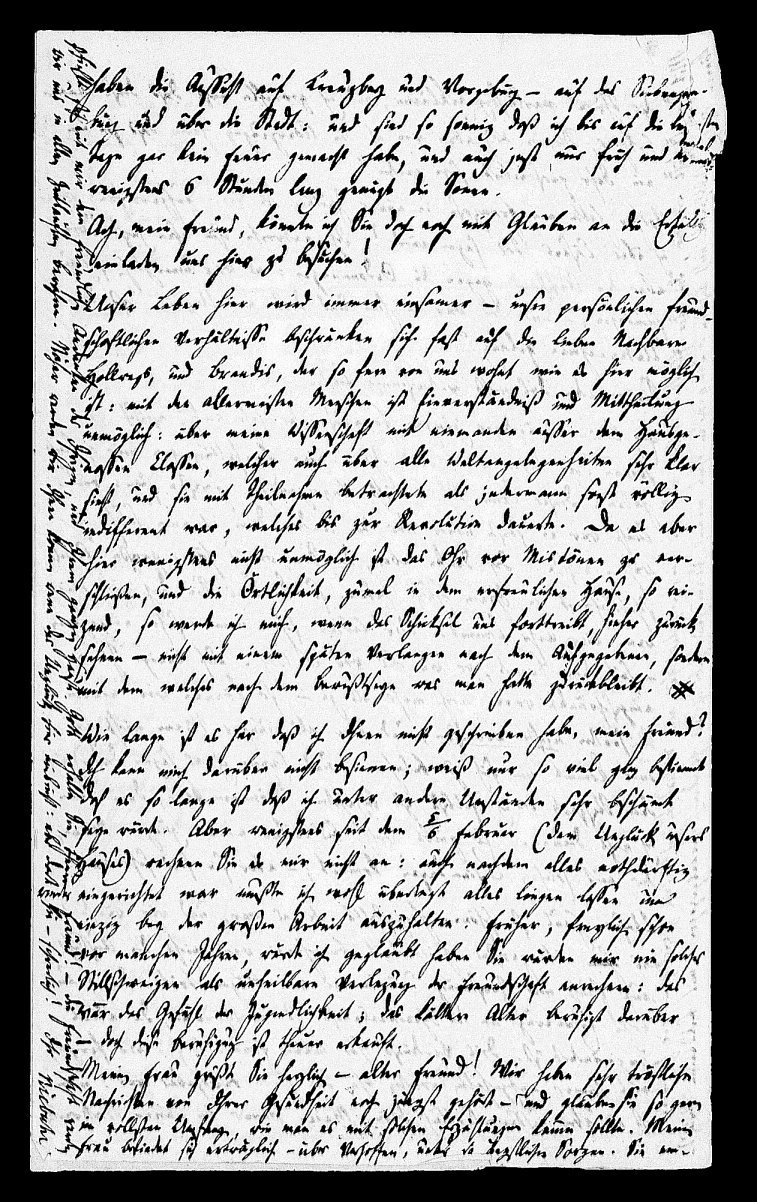 haben die Aussicht auf Kreuzberg und Vorgebürg – auf das Siebenge-
bürg und über die Stadt: und sind so sonnig daß ich bis auf die
Tage gar kein Feuer gemacht habe, und auch jetzt nur früh und
wenigstens 6 Stunden lang genügt die Sonne.
Ach, mein Freund, könnte ich Sie doch noch mit Glauben an die
einladen uns hier zu besuchen!
Unser Leben hier wird immer einsamer – unsre persönlichen Freund-
schaftlichen Verhältnisse beschränken sich fast auf die lieben Nachbaren
Hollwegs, und Brandis, der so fern von uns wohnt wie es hier möglich
ist: mit den allermeisten Menschen ist Einverständniß und Mittheilung
unmöglich: über meine Wissenschaft mit niemanden ausser dem Hausge-
nossen Classen, welcher auch über alle Weltangelegenheiten sehr klar
sieht, und sie mit Theilnahme betrachtete als jedermann sonst völlig
indifferent war, welches bis zur Revolution dauerte. Da es aber
hier wenigstens nicht unmöglich ist das Ohr vor Mistönen zu ver-
schließen, und die Örtlichkeit, zumal in dem erfreulichen Hause, so rei-
zend, so werde ich mich, wenn das Schicksal uns forttreibt, hieher zurück
sehnen – nicht mit einem späten Verlangen nach dem Aufgegebenen, sondern
mit dem welches nach dem Bewußtseyn was man hatte zurückbleibt.
Wie lange ist es her daß ich Ihnen nicht geschrieben habe, mein Freund?
Ich kann mich darüber nicht besinnen; weiß nur so viel ganz bestimmt
daß es so lange ist daß ich unter andern Umständen sehr beschämt
seyn würde. Aber wenigstens seit dem 5/6 Februar (dem Unglück unsers
Hauses) rechnen Sie es mir nicht an: auch nachdem alles nothdürftig
wieder eingerichtet war mußte ich wohl überlegt alles liegen lassen um
einzig bey der großen Arbeit auszuhalten: früher, freylich schon
vor manchen Jahren, würde ich geglaubt haben Sie würden mir ein solches
Stillschweigen als unheilbare Verletzung der Freundschaft anrechnen: das
war das Gefühl der Jugendlichkeit; das kältere Alter beruhigt darüber
– doch diese Beruhigung ist theuer erkauft.
Meine Frau grüßt Sie herzlich – alter Freund! Wir haben sehr tröstliche
Nachrichten von Ihrer Gesundheit noch jüngst gehört – und glauben sie so gern
im vollsten Umfang, wie man es mit solchen Erzählungen können sollte. Meine
Frau befindet sich erträglich – über Verhoffen, unter so ängstlichen Sorgen. Sie
mir ein freundliches Andenken
Gott erhalte Sie, theurer Freund! – die Freundschaft
wir uns in allen
Ihr Niebuhr.